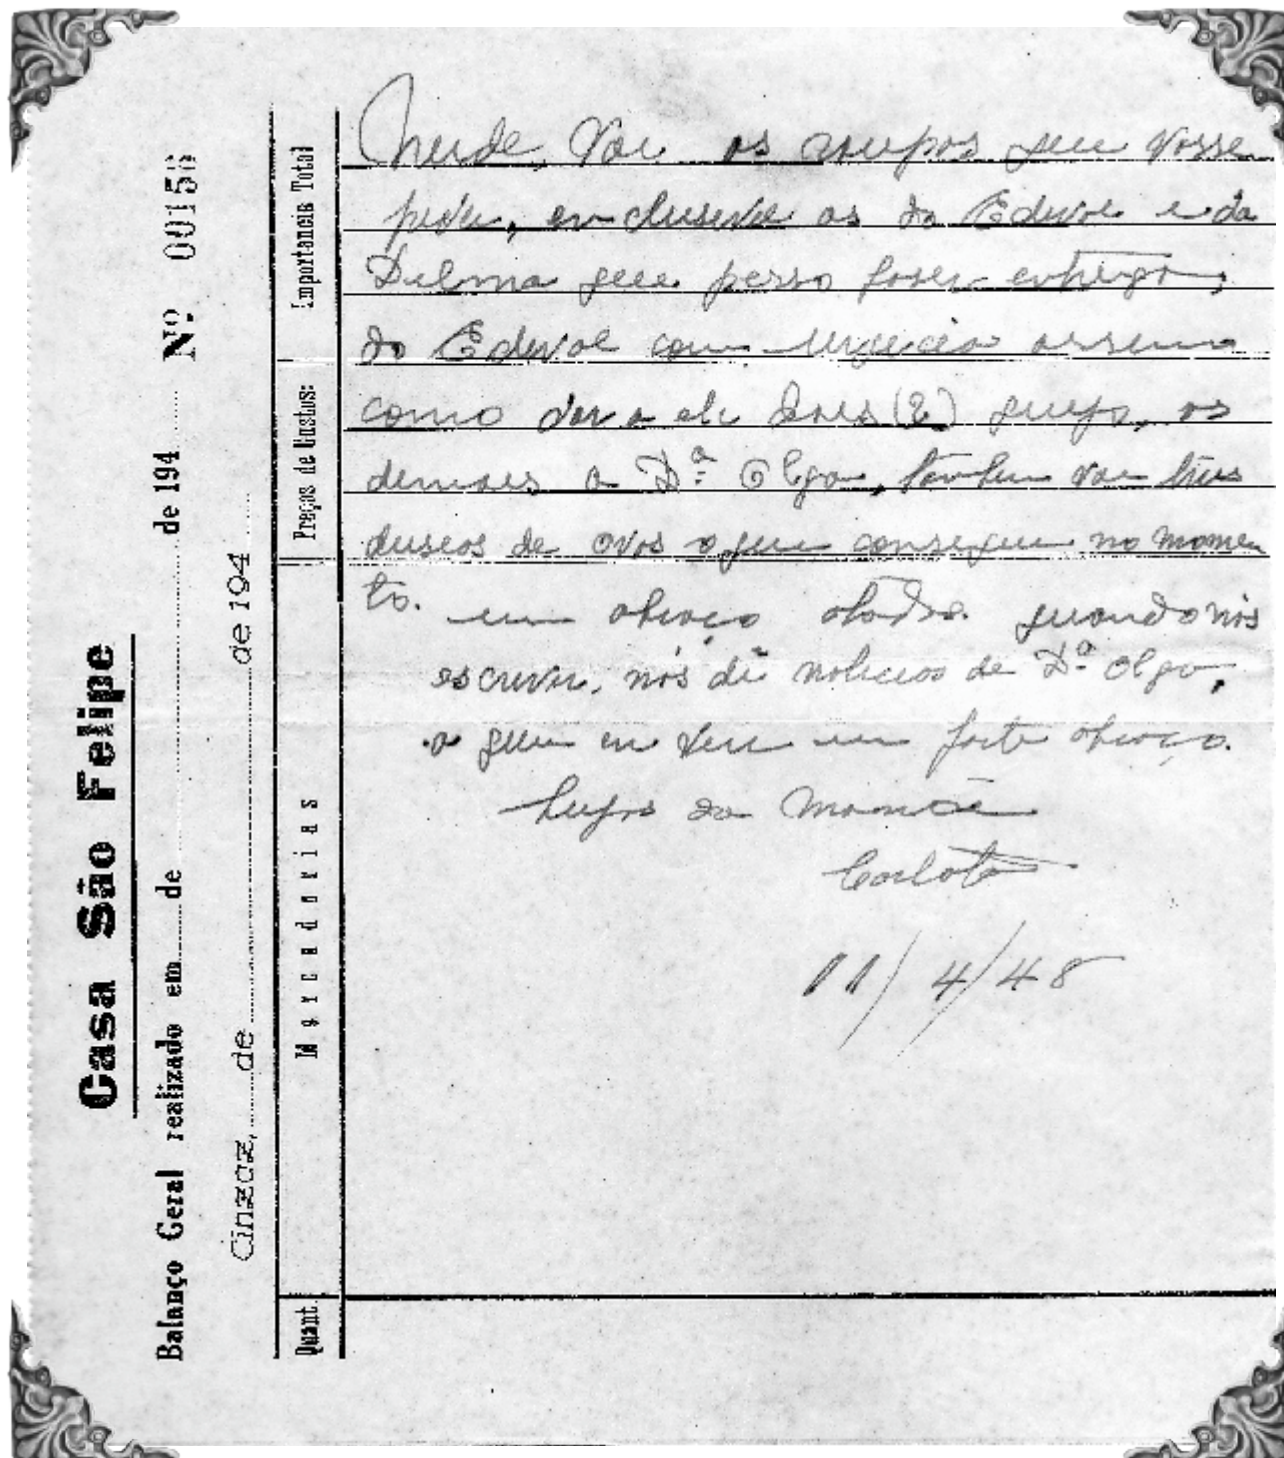 Casa São Felipe
Balanço Geral realizado em de de 194 Nº 00156
Cinzaz, de de 194
Quant. Mercadorias Preços de Custos: Importancia Total
Neide, Vai as roupas que vosse
pediu, en clusive as do Edival e da
Dilma que peço faser entrega,
do Edival com urgecia assim
como dar a ele dois (2) queijo, os
demaes a Dª Olga, tambem vai treis
duseas de ovos o que consegui no momen
to. um abraço abadse. quando nós
escrever, nós dê noticias de Dª Olga,
a quem en veu um forte abraço.
da Mamãe
Carlota
11/4/48